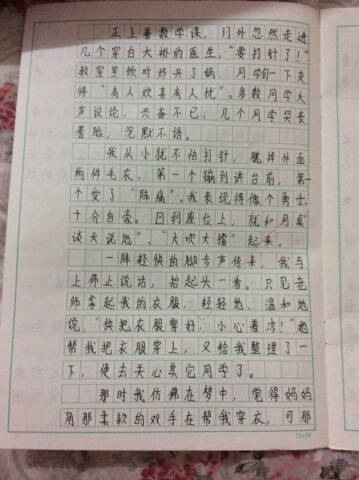 正上着数学课，门外忽然走进
几个穿白大褂的医生，“要打针了！”
教室里顿时炸开了锅，同学们一下变
得“有人欢喜有人忧”。多数同学大
声议论，兴奋不已，几个同学哭丧
着脸，沉默不语。
我从小就不怕打针，脱掉外面
两件毛衣，第一个蹦到讲台前，第一
个受了“阵痛”。我表现得像个勇士，
十分自豪。回到座位上，就和同桌
“谈天说地”、“大吹大擂”起来。
一阵轻快的脚步声传来，我马
上停止说话，抬起头一看。只见老
师拿起我的衣服，轻轻地、温和地
说，“快把衣服穿好，小心着凉！”她
帮我把衣服穿上，又给我整理了一
下，便去关心其它同学了。
那时我仿佛在梦中，觉得妈妈
用那柔软的双手在帮我穿衣，可那